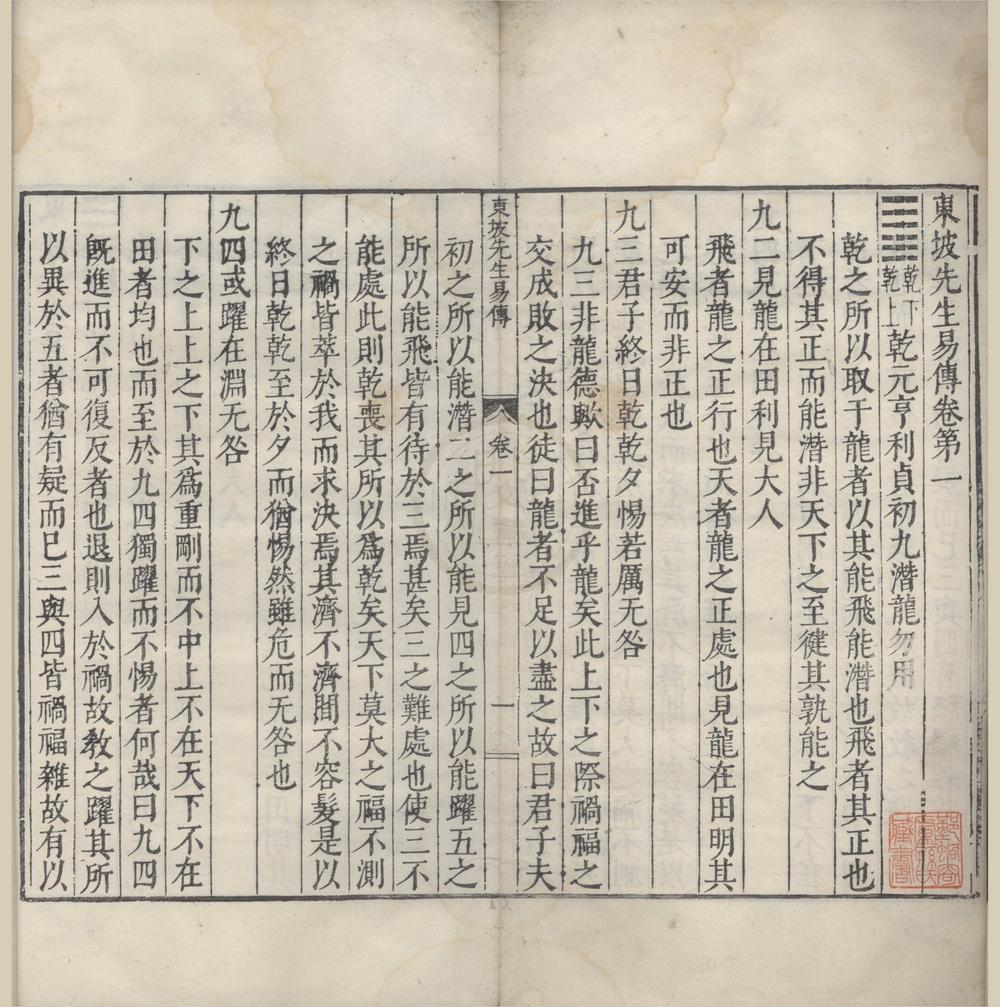 東坡先生易傳卷第一
乾下乾上乾元亨利貞初九潛龍勿用
乾之所以取于龍者以其能飛能潛也飛者其正也
不得其正而能潛非天下之至健其孰能之
九二見龍在田利見大人
飛者龍之正行也天者龍之正處也見龍在田明其
可安而非正也
九三君子終日乾乾夕惕若厲无咎
九三非龍德歟曰否進乎龍矣此上下之際禍福之
交成敗之決也徒曰龍者不足以盡之故曰君子夫
東坡先生易傳 卷一 一
初之所以能潛二之所以能見四之所以能躍五之
所以能飛皆有待於三焉甚矣三之難處也使三不
能處此則乾喪其所以爲乾矣天下莫大之福不測
之禍皆萃於我而求決焉其濟不濟間不容髮是以
終日乾乾至於夕而猶惕然雖危而无咎也
九四或躍在淵无咎
下之上上之下其爲重剛而不中上不在天下不在
田者均也而至於九四獨躍而不惕者何哉曰九四
旣進而不可復反者也退則入於禍故教之躍其所
以異於五者猶有疑而已三與四皆禍福雜故有以